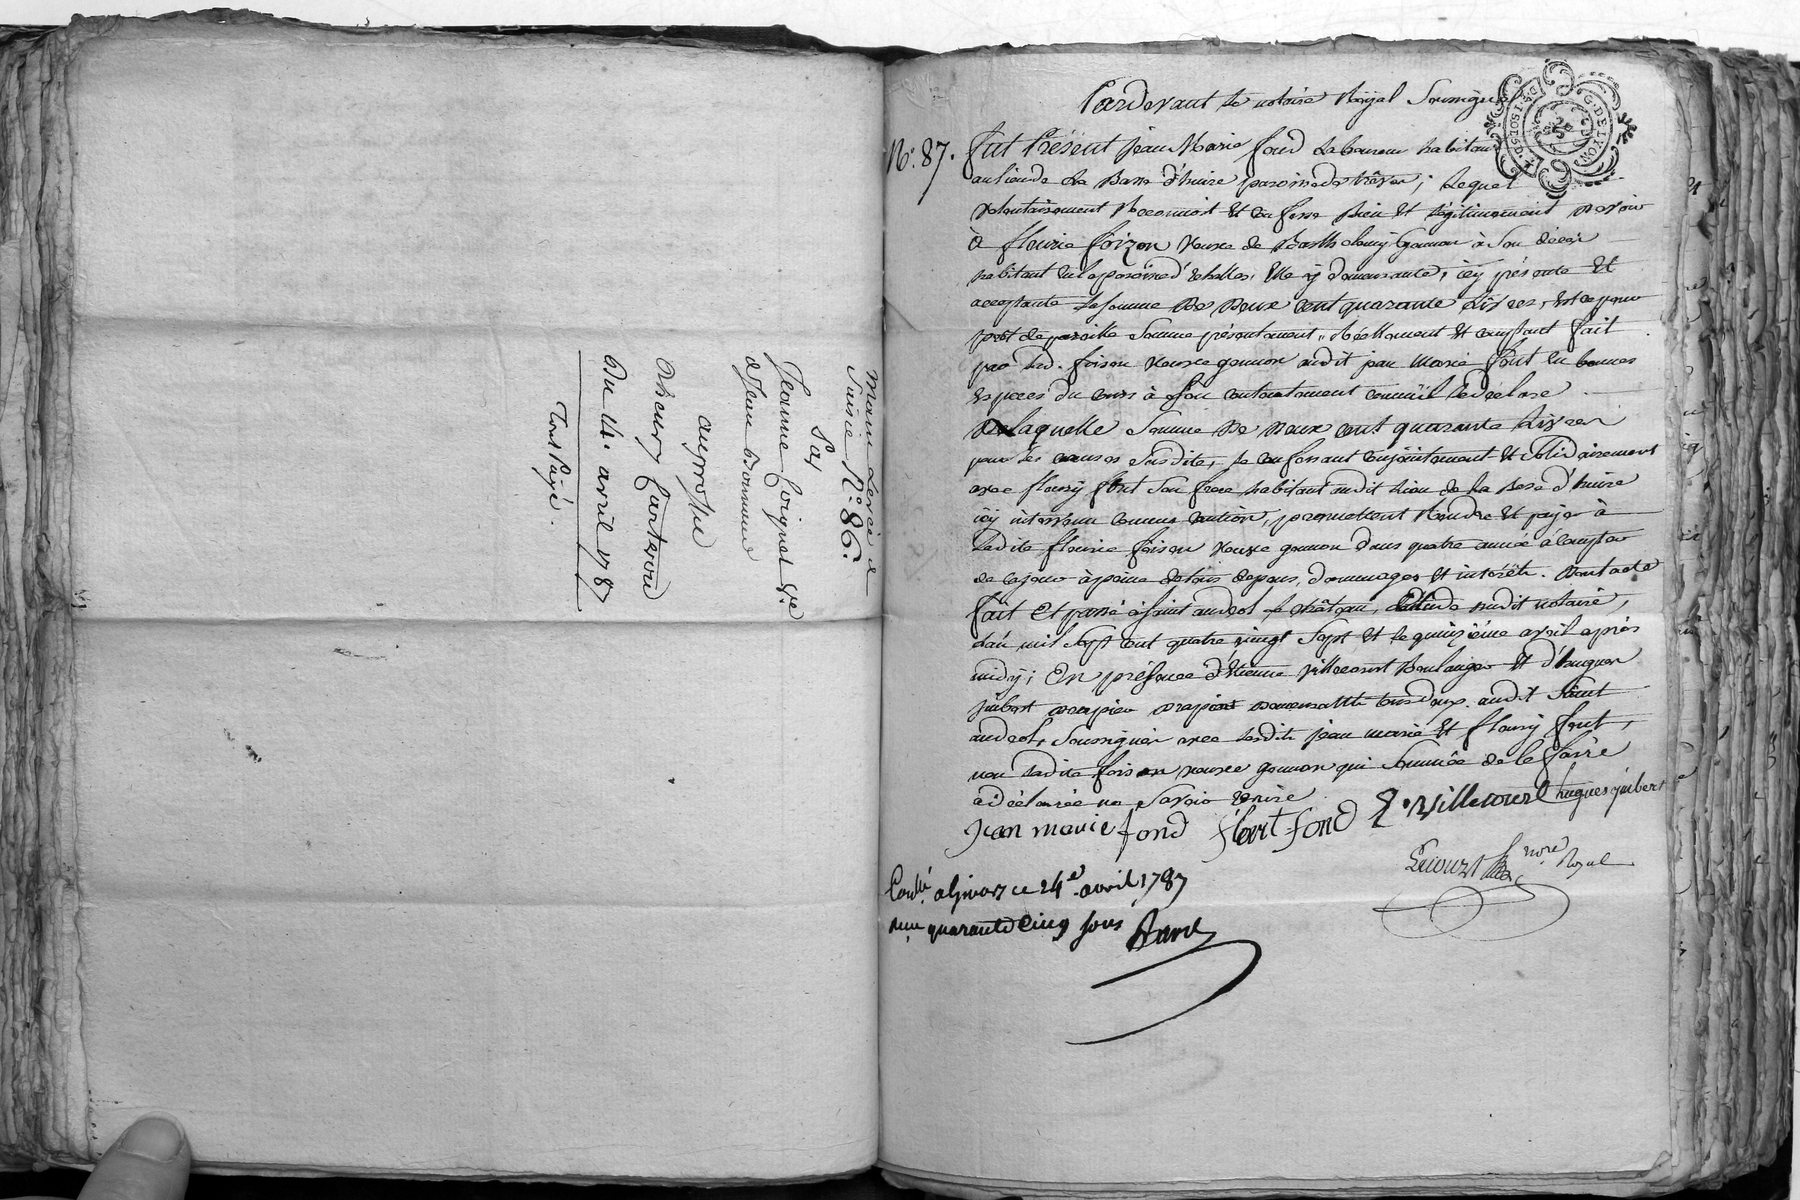 main Levée de
Saisie N.° 86.
Par
Jeanne Coignet v.e
de Jean Bonnand
au profit
Du 14. avril 1787
Tout Payé.
G. DE LYON
Pardevant le notaire Royal Soussigné
N.° 87. fut Présent Jean Marie fond Laboureur habitant
au lieu de La Basse d'huire paroisse de trèves ; Lequel
volontairement Reconnoit et confesse Bien et légitimement devoir
à fleurie foizon veuve de Barthelemy Gounon à Son décès
habitant en la paroisse d'échallas, elle y demeurante, icy présente et
acceptante La somme De Deux cent quarante Livres, Et ce pour
prêt de pareille Somme présentement, Réellement et comptant fait
par lad. foison veuve gounon audit jean Marie font en bonnes
espèces du cours à son contentement comme il le déclare
De Laquelle Somme De Deux cent quarante Livres
pour les causes Susdites, se confessant conjointement et Solidairement
avec fleury font Son frere habitant audit Lieu de La Basse d'huire
icy intervenu comme caution, promettent Rendre et payer à
Ladite fleurie foison veuve gounon Dans quatre année à compter
de ce jour à peine de tous depens, dommages et intérêts. Dont acte
fait et passé à Saint andeol le château, Etude dudit notaire,
l'an mil Sept cent quatre vingt Sept et le quinzième avril après
midy ; En présence d'Etienne villecourt Boulanger et d'hugues
jubert drapier demeurants tous deux audit Saint
andeol, Soussignés avec lesdits jean marie et fleury font,
non Ladite foison veuve gounon qui Sommée de le faire
a déclarée ne Savoir écrire
Jean marie fond fleuri fond E. villecourt hugues jubert
Lecourt nore. Royal
Contlé. a Givors ce 24e. avril 1787
reçu quarante Cinq sous